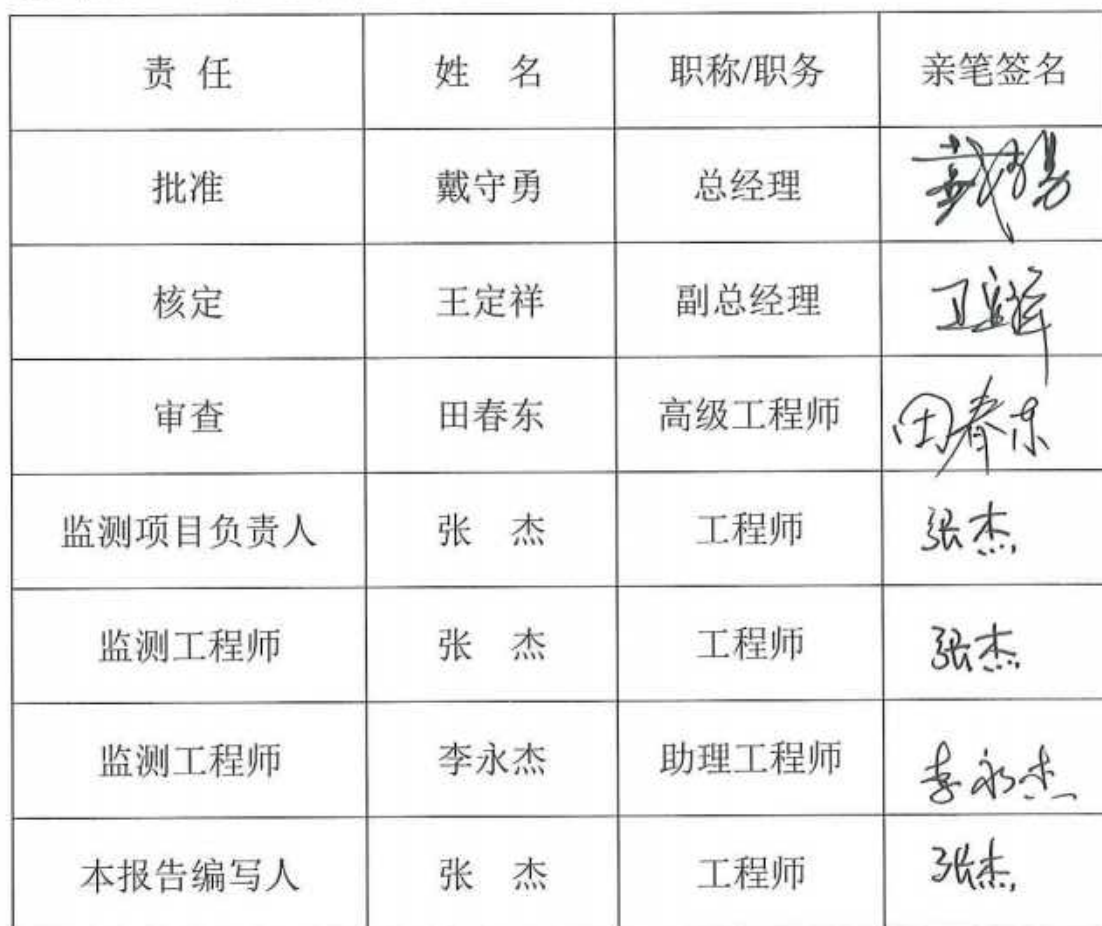 责 任 姓 名 职称/职务 亲笔签名
批准 戴守勇 总经理
核定 王定祥 副总经理
审查 田春东 高级工程师 田春东
监测项目负责人 张 杰 工程师 张杰
监测工程师 张 杰 工程师 张杰
监测工程师 李永杰 助理工程师 李永杰
本报告编写人 张 杰 工程师 张杰